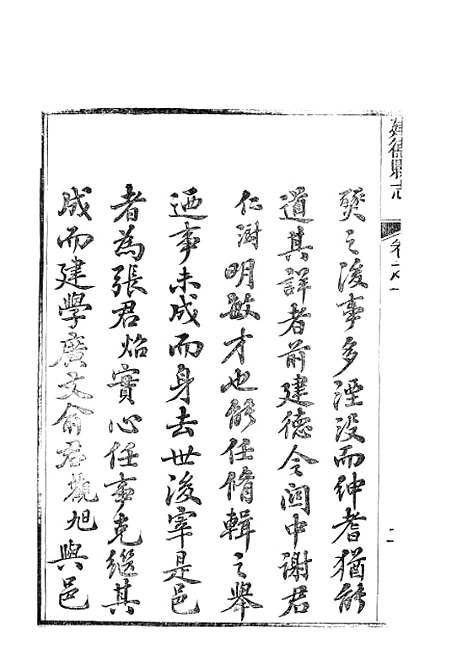 建德縣志
卷之一
二
燹之後事多湮没而紳耆猶能
道其詳者前建德令閩中謝君
仁澍明敏才也能任脩輯之舉
迺事未成而身去世後宰是邑
者為張君焰實心任事克繼其
成而建學廣文俞君觀旭與邑